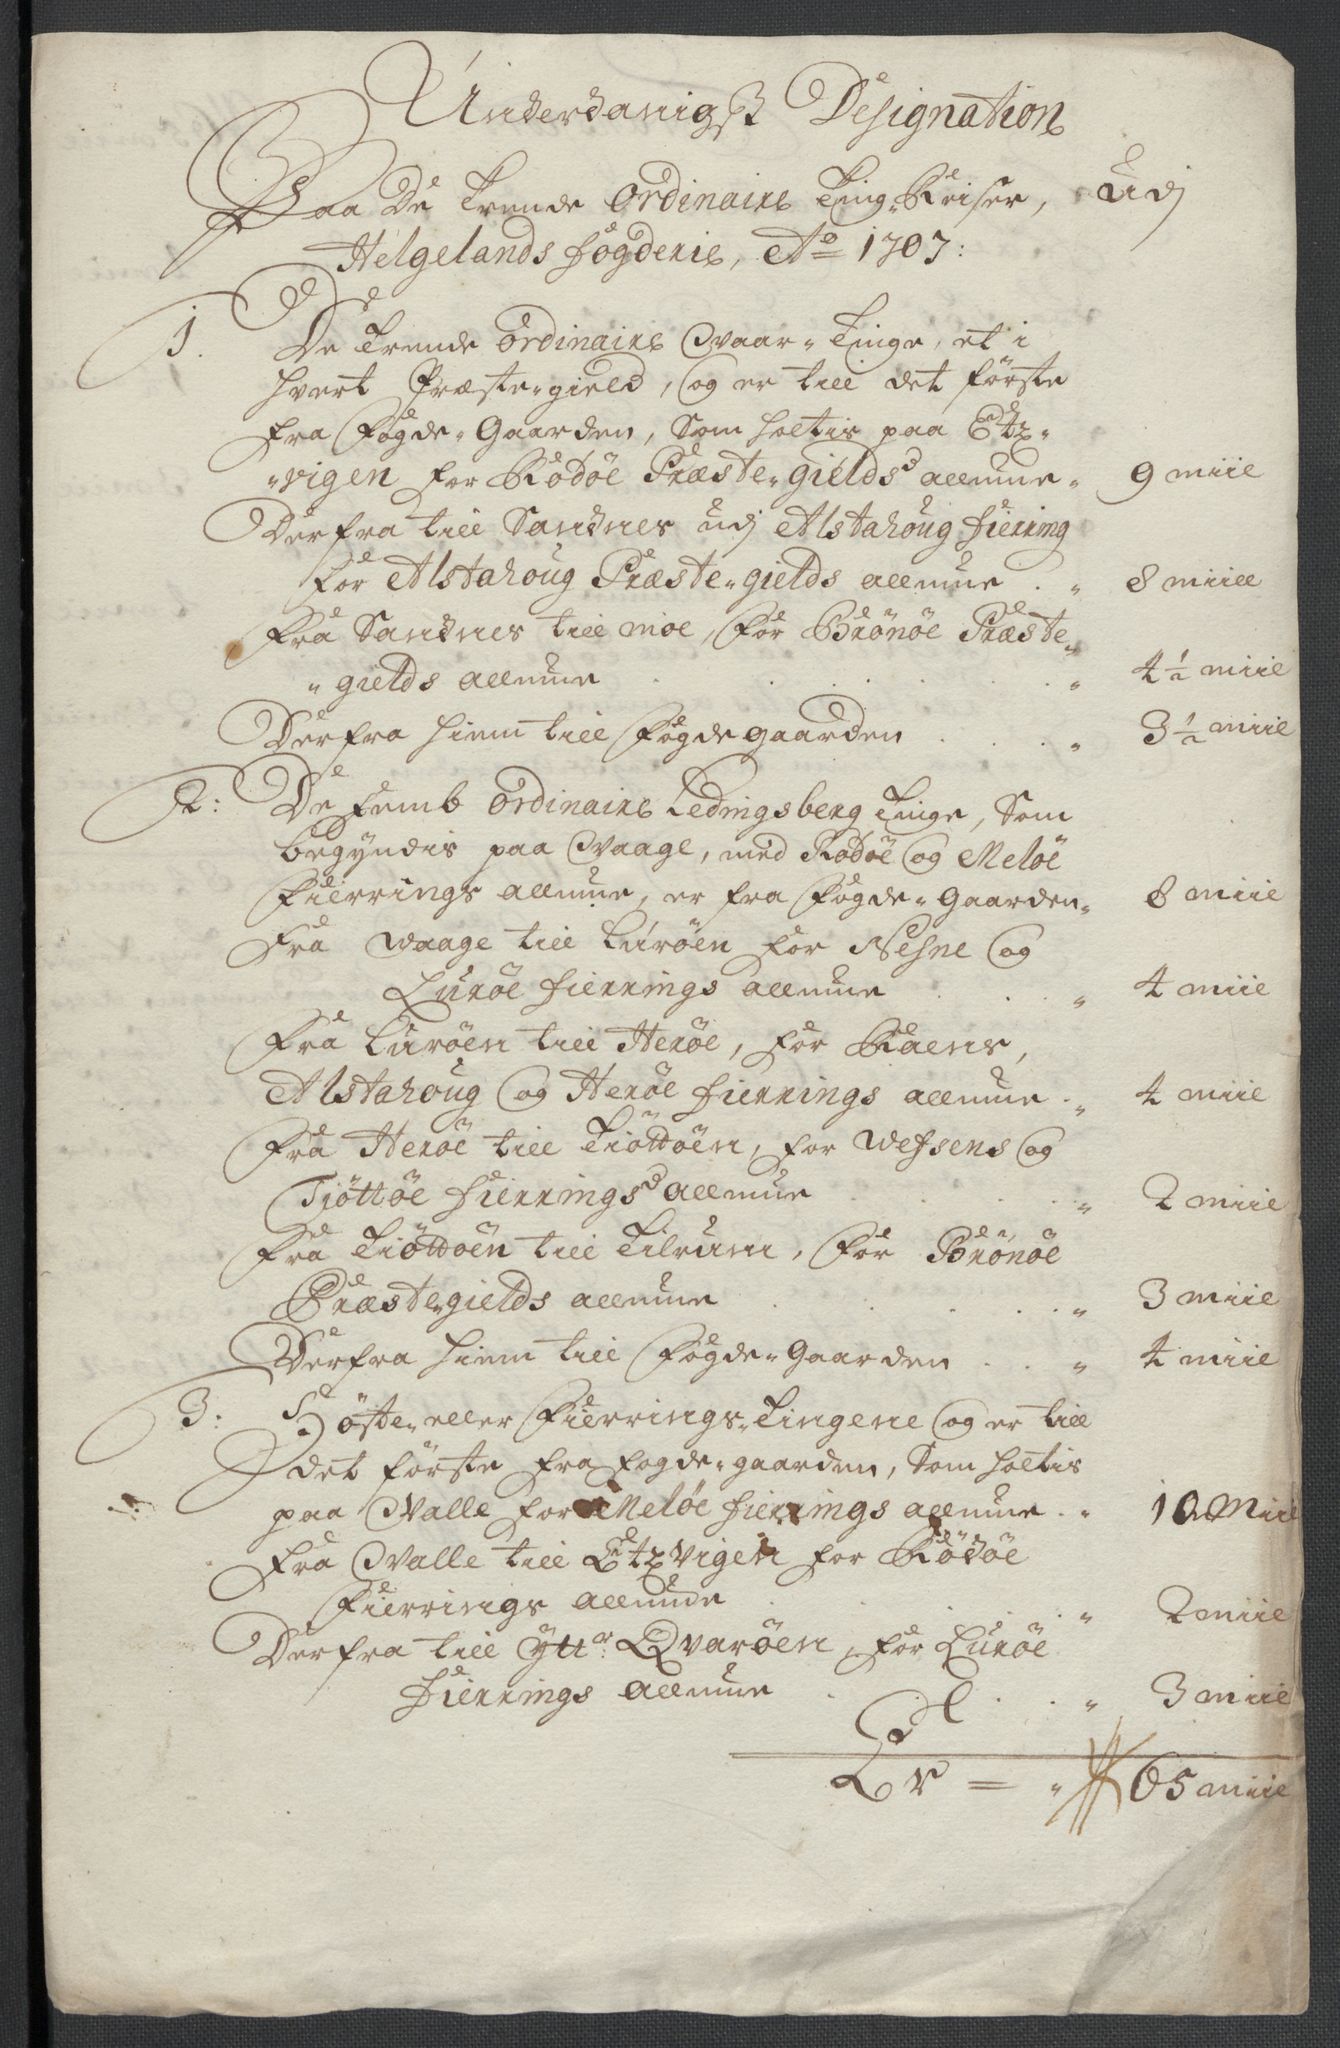 Underdanigst Designation
Paa De Trende Ordinaire Ting-Reiser, udj
Helgelands fogderie, Ao 1707:
1. De Trende Ordinaire Waar-Tinge, et i
hvert Præste-gield, og er till det første
fra Fogde-Gaarden, som holtis paa Etz-
-vigen for Rødøe Præste-gields allmue " 9 miile
Derfra till Sandnes udj Alstahoug fierring
for Alstahoug Præste-gields allmue . " 8 miill
Fra Sandnes till moe, for Brönöe Præste-
-gields allmue . . . . . " 4 1/2 miile
Derfra hiem till Fogdegaarden . . . " 3 1/2 miile
2: De Femb Ordinaire Ledingsberg Tinge, som
begyndis paa Waage, med Rødøe og Meløe
Fierrings allmue, er fra Fogde-Gaarden " 8 miile
Fra Waage till Lurøen for Nesne og
Lurøe fierrings allmue . . . " 4 miile
Fra Lurøen till Herøe, for Raens,
Alstahoug og Herøe fierrings allmue . " 4 miile
Fra Herøe till Tiøttøen, for Wefsens og
Tiøttøe fierrings allmue . . . " 2 miile
Fra Tiøttøen till Tilrum, for Brönöe
Præstegields allmue . . . . " 3 miile
Derfra hiem till Fogde-Gaarden . . " 4 miile
3: Høste- eller Fierrings-Tingene og er till
det første fra fogde-gaarden, som holtis
paa Walle for Meløe fierrings allmue . " 10 Miil
Fra Walle till Etzvigen for Rødøe
Fierrings allmue . . . . " 2 miile
Derfra till Ytt: Qvarøen, for Lurøe
fierrings allmue . . . " 3 miile
" 65 miile